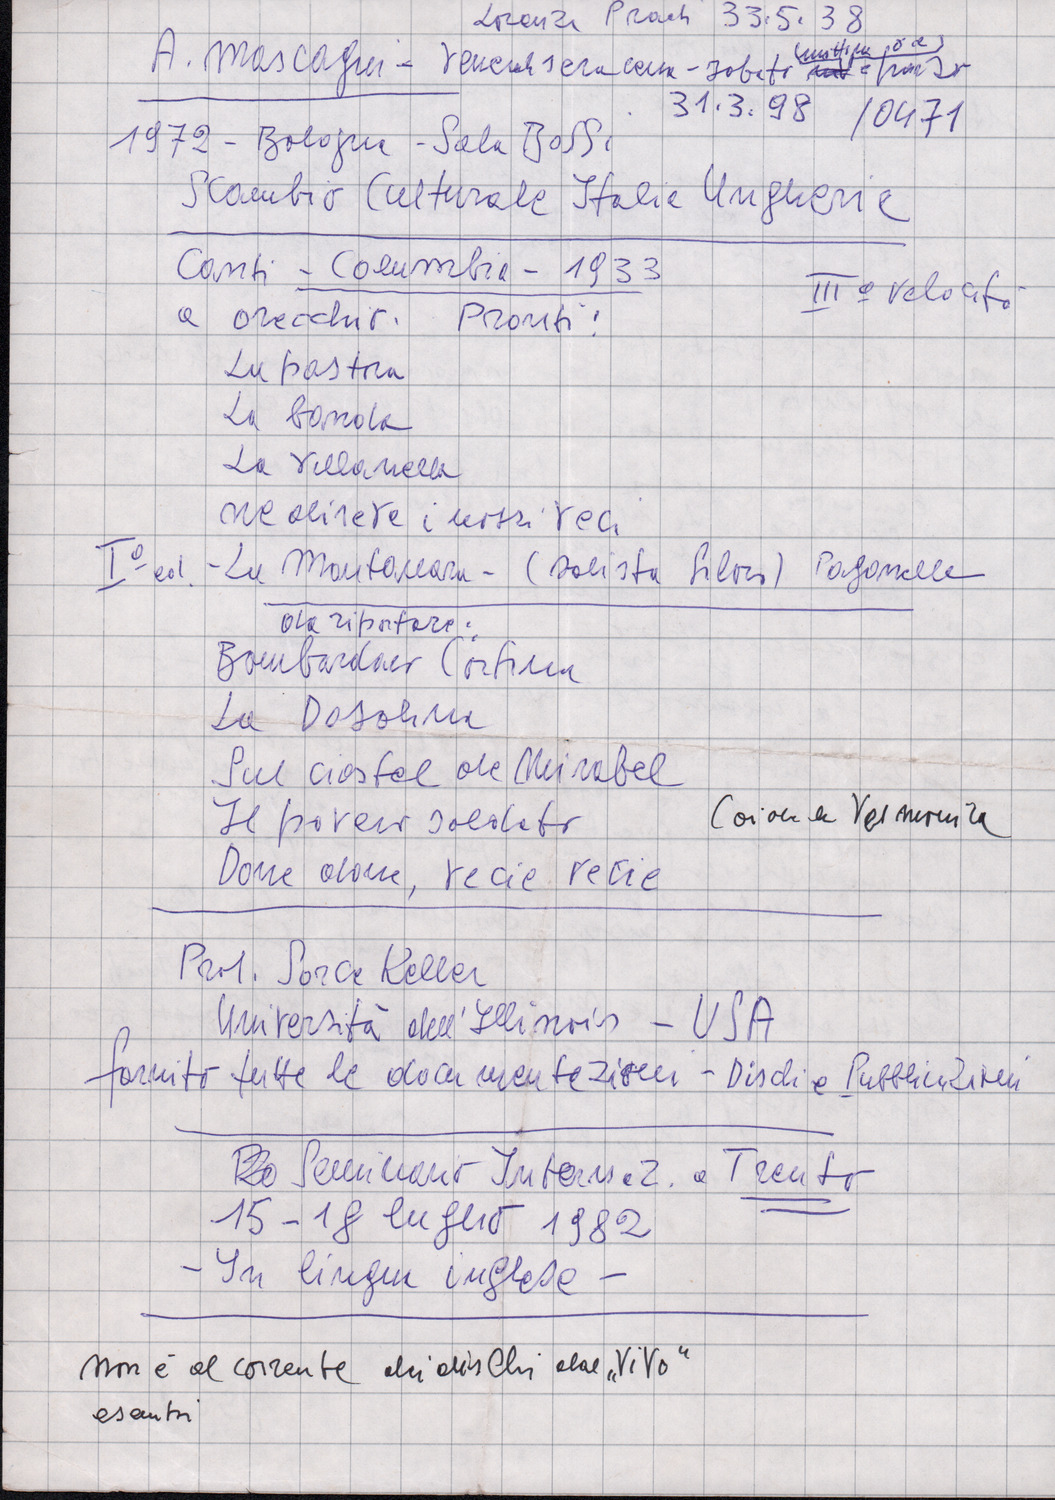 Lorenza Prach 33.5.38
A. Mascagni - Venerdi sera cena - Sabato mattina ore
e pranzo
31.3.98 /0471
1972 - Bologna - Sala Bossi
Scambio Culturale Italia Ungheria
Canti - Columbia - 1933
IIIª velocità
a orecchio. Pronti!
La pastora
La bomola
La Villanella
ne direte i nostri veci
Iª ed. - La Montanara - (solista Silvio) Paganella
da riportare:
Bombardano Cortina
La Dosolina
Sul ciastel de Mirabel
Il povero soldato
Coro a
Done done, vecie vecie
Prof. Sorce Keller
Università dell'Illinois - USA
fornito tutte le documentazioni - Dischi e Pubblicazioni
Seminario Internaz. a Trento
15-18 luglio 1982
- In lingua inglese -
Non è al corrente dei dischi dal „ViVo“
esauriti